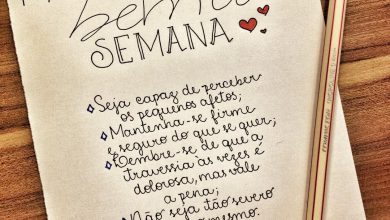 SEMANA
Seja capaz de perceber
os pequenos afetos;
Mantenha-se firme
e seguro do que se quer;
Lembre-se de que a
travessia às vezes é
dolorosa, mas vale
a pena;
Não seja tão severo
mesmo.